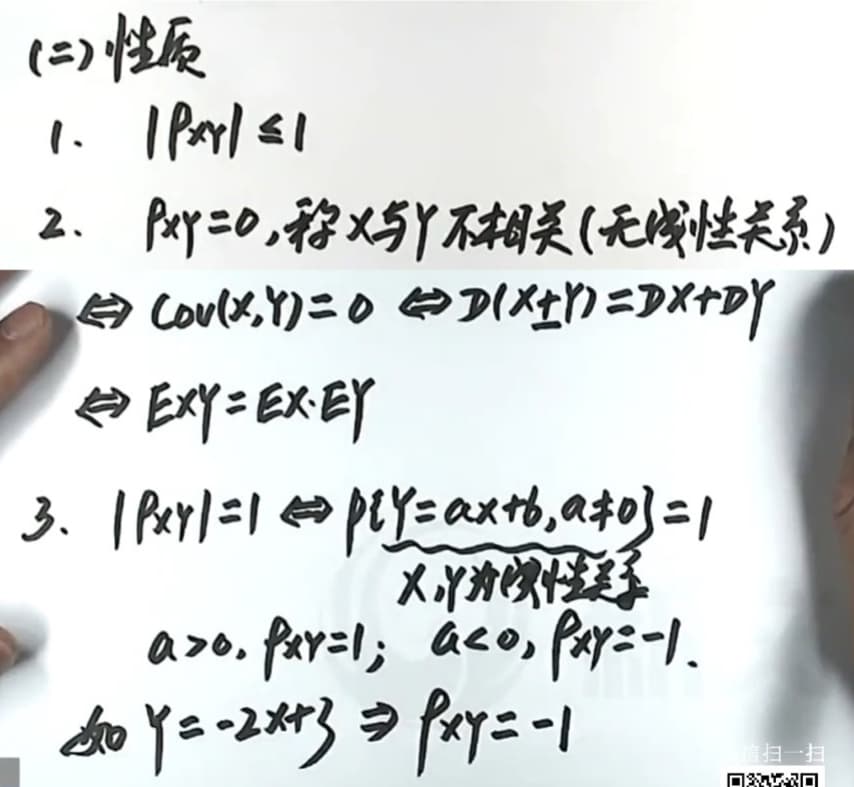 (二)性质
1. |ρXY|≤1
2. ρXY=0,称X与Y不相关(无线性关系)
⇔ Cov(X,Y)=0 ⇔ D(X±Y)=DX+DY
⇔ EXY=EX·EY
3. |ρXY|=1 ⇔ P{Y=aX+b,a≠0}=1
X,Y为线性关系
a>0, ρXY=1; a<0, ρXY=-1.
如 Y=-2X+3 ⇒ ρXY=-1
信扫一扫